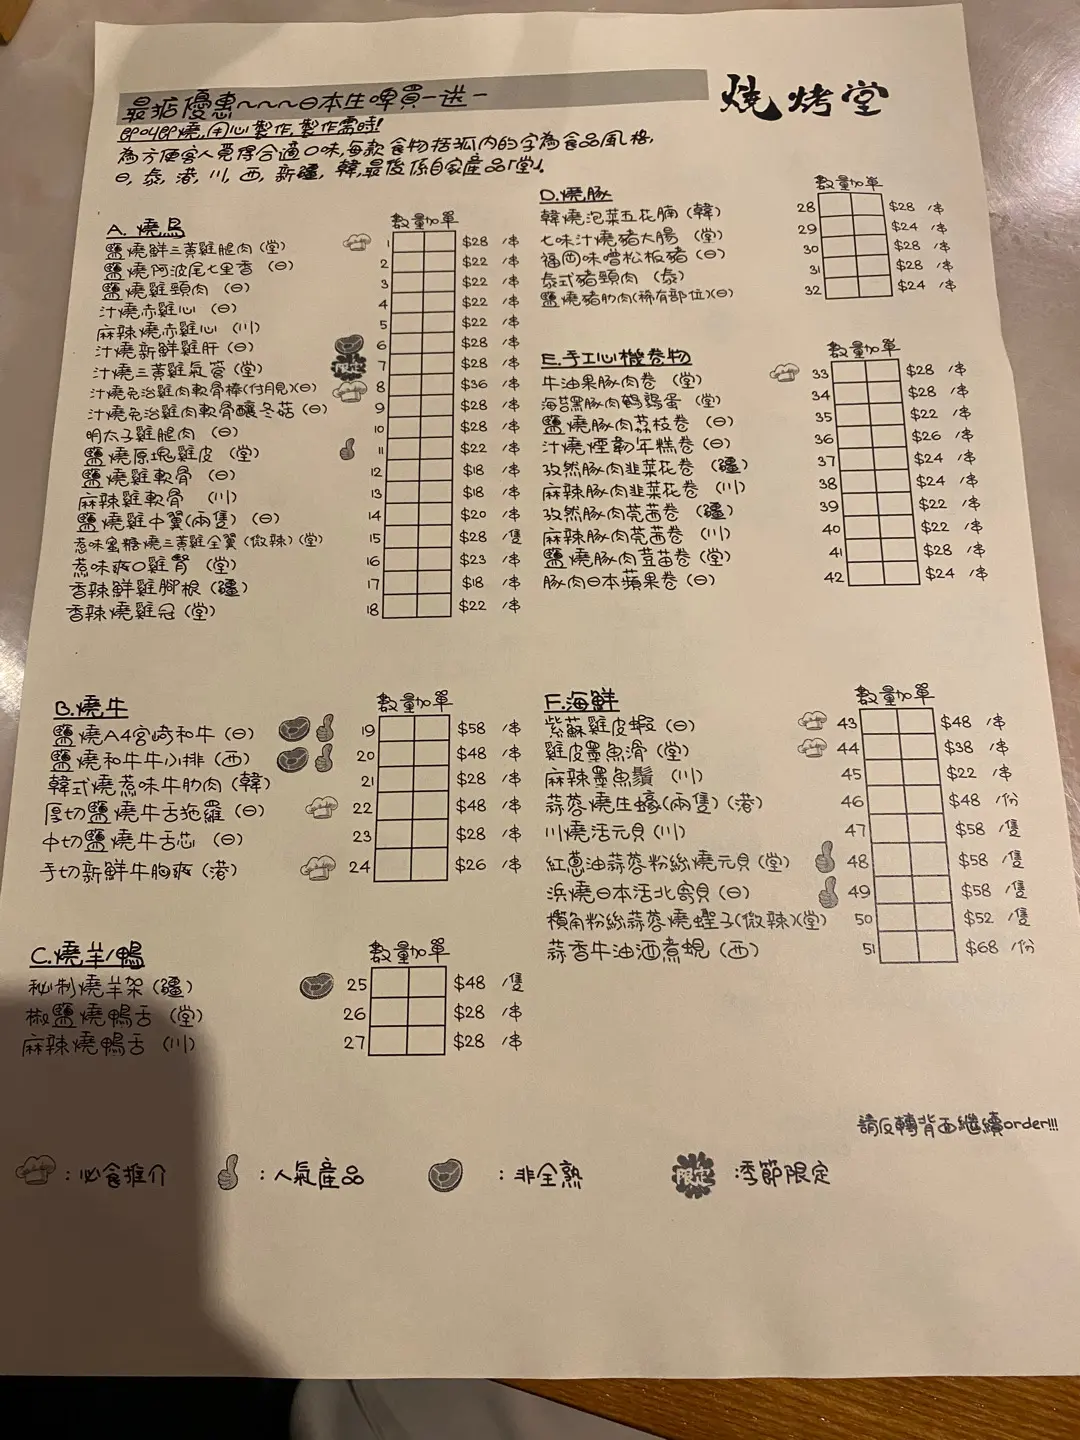 最掂優惠~~~日本生啤買一送一
燒烤堂
即叫即燒,用心製作,製作需時!
為方便客人覓得合適口味,每款食物括弧內的字為食品風格,
日, 泰, 港, 川, 西, 新疆, 韓,最後係自家產品「堂」。
A. 燒鳥
數量加單
鹽燒鮮三黃雞腿肉(堂) 1 $28 /串
鹽燒阿波尾七里香 (日) 2 $22 /串
鹽燒雞頸肉 (日) 3 $22 /串
汁燒赤雞心 (日) 4 $22 /串
麻辣燒赤雞心 (川) 5 $22 /串
汁燒新鮮雞肝 (日) 6 $28 /串
汁燒三黃雞氣管 (堂) 限定 7 $28 /串
汁燒免治雞肉軟骨棒(付月見)(日) 8 $36 /串
汁燒免治雞肉軟骨釀冬菇 (日) 9 $28 /串
明太子雞腿肉 (日) 10 $28 /串
鹽燒原塊雞皮 (堂) 11 $22 /串
鹽燒雞軟骨 (日) 12 $18 /串
麻辣雞軟骨 (川) 13 $18 /串
鹽燒雞中翼(兩隻) (日) 14 $20 /串
惹味蜜糖燒三黃雞全翼 (微辣) (堂) 15 $28 /隻
惹味爽口雞腎 (堂) 16 $23 /串
香辣鮮雞腳根 (疆) 17 $18 /串
香辣燒雞冠 (堂) 18 $22 /串
B.燒牛
數量加單
鹽燒A4宮崎和牛 (日) 19 $58 /串
鹽燒和牛牛小排 (西) 20 $48 /串
韓式燒惹味牛肋肉 (韓) 21 $28 /串
厚切鹽燒牛舌拖羅 (日) 22 $48 /串
中切鹽燒牛舌芯 (日) 23 $28 /串
手切新鮮牛胸爽 (港) 24 $26 /串
C.燒羊/鴨
數量加單
秘制燒羊架 (疆) 25 $48 /隻
椒鹽燒鴨舌 (堂) 26 $28 /串
麻辣燒鴨舌 (川) 27 $28 /串
D.燒豚
數量加單
韓燒泡菜五花腩 (韓) 28 $28 /串
七味汁燒豬大腸 (堂) 29 $24 /串
福岡味噌松板豬 (日) 30 $28 /串
泰式豬頸肉 (泰) 31 $28 /串
鹽燒豬肋肉(稀有部位)(日) 32 $24 /串
E.手工心機卷物
數量加單
牛油果豚肉卷 (堂) 33 $28 /串
海苔黑豚肉鵪鶉蛋 (堂) 34 $28 /串
鹽燒豚肉荔枝卷 (日) 35 $22 /串
汁燒煙韌年糕卷 (日) 36 $26 /串
孜然豚肉韭菜花卷 (疆) 37 $24 /串
麻辣豚肉韭菜花卷 (川) 38 $24 /串
孜然豚肉芫茜卷 (疆) 39 $22 /串
麻辣豚肉芫茜卷 (川) 40 $22 /串
鹽燒豚肉荳苗卷 (堂) 41 $28 /串
豚肉日本蘋果卷 (日) 42 $24 /串
F.海鮮
數量加單
紫蘇雞皮蝦 (日) 43 $48 /串
雞皮墨魚滑 (堂) 44 $38 /串
麻辣墨魚鬚 (川) 45 $22 /串
蒜蓉燒生蠔(兩隻) (港) 46 $48 /份
川燒活元貝 (川) 47 $58 /隻
紅蔥油蒜蓉粉絲燒元貝 (堂) 48 $58 /隻
浜燒日本活北寄貝 (日) 49 $58 /隻
欖角粉絲蒜蓉燒蟶子(微辣)(堂) 50 $52 /隻
蒜香牛油酒煮蜆 (西) 51 $68 /份
請反轉背面繼續order!!!
: 必食推介
: 人氣產品
: 非全熟
限定 :季節限定